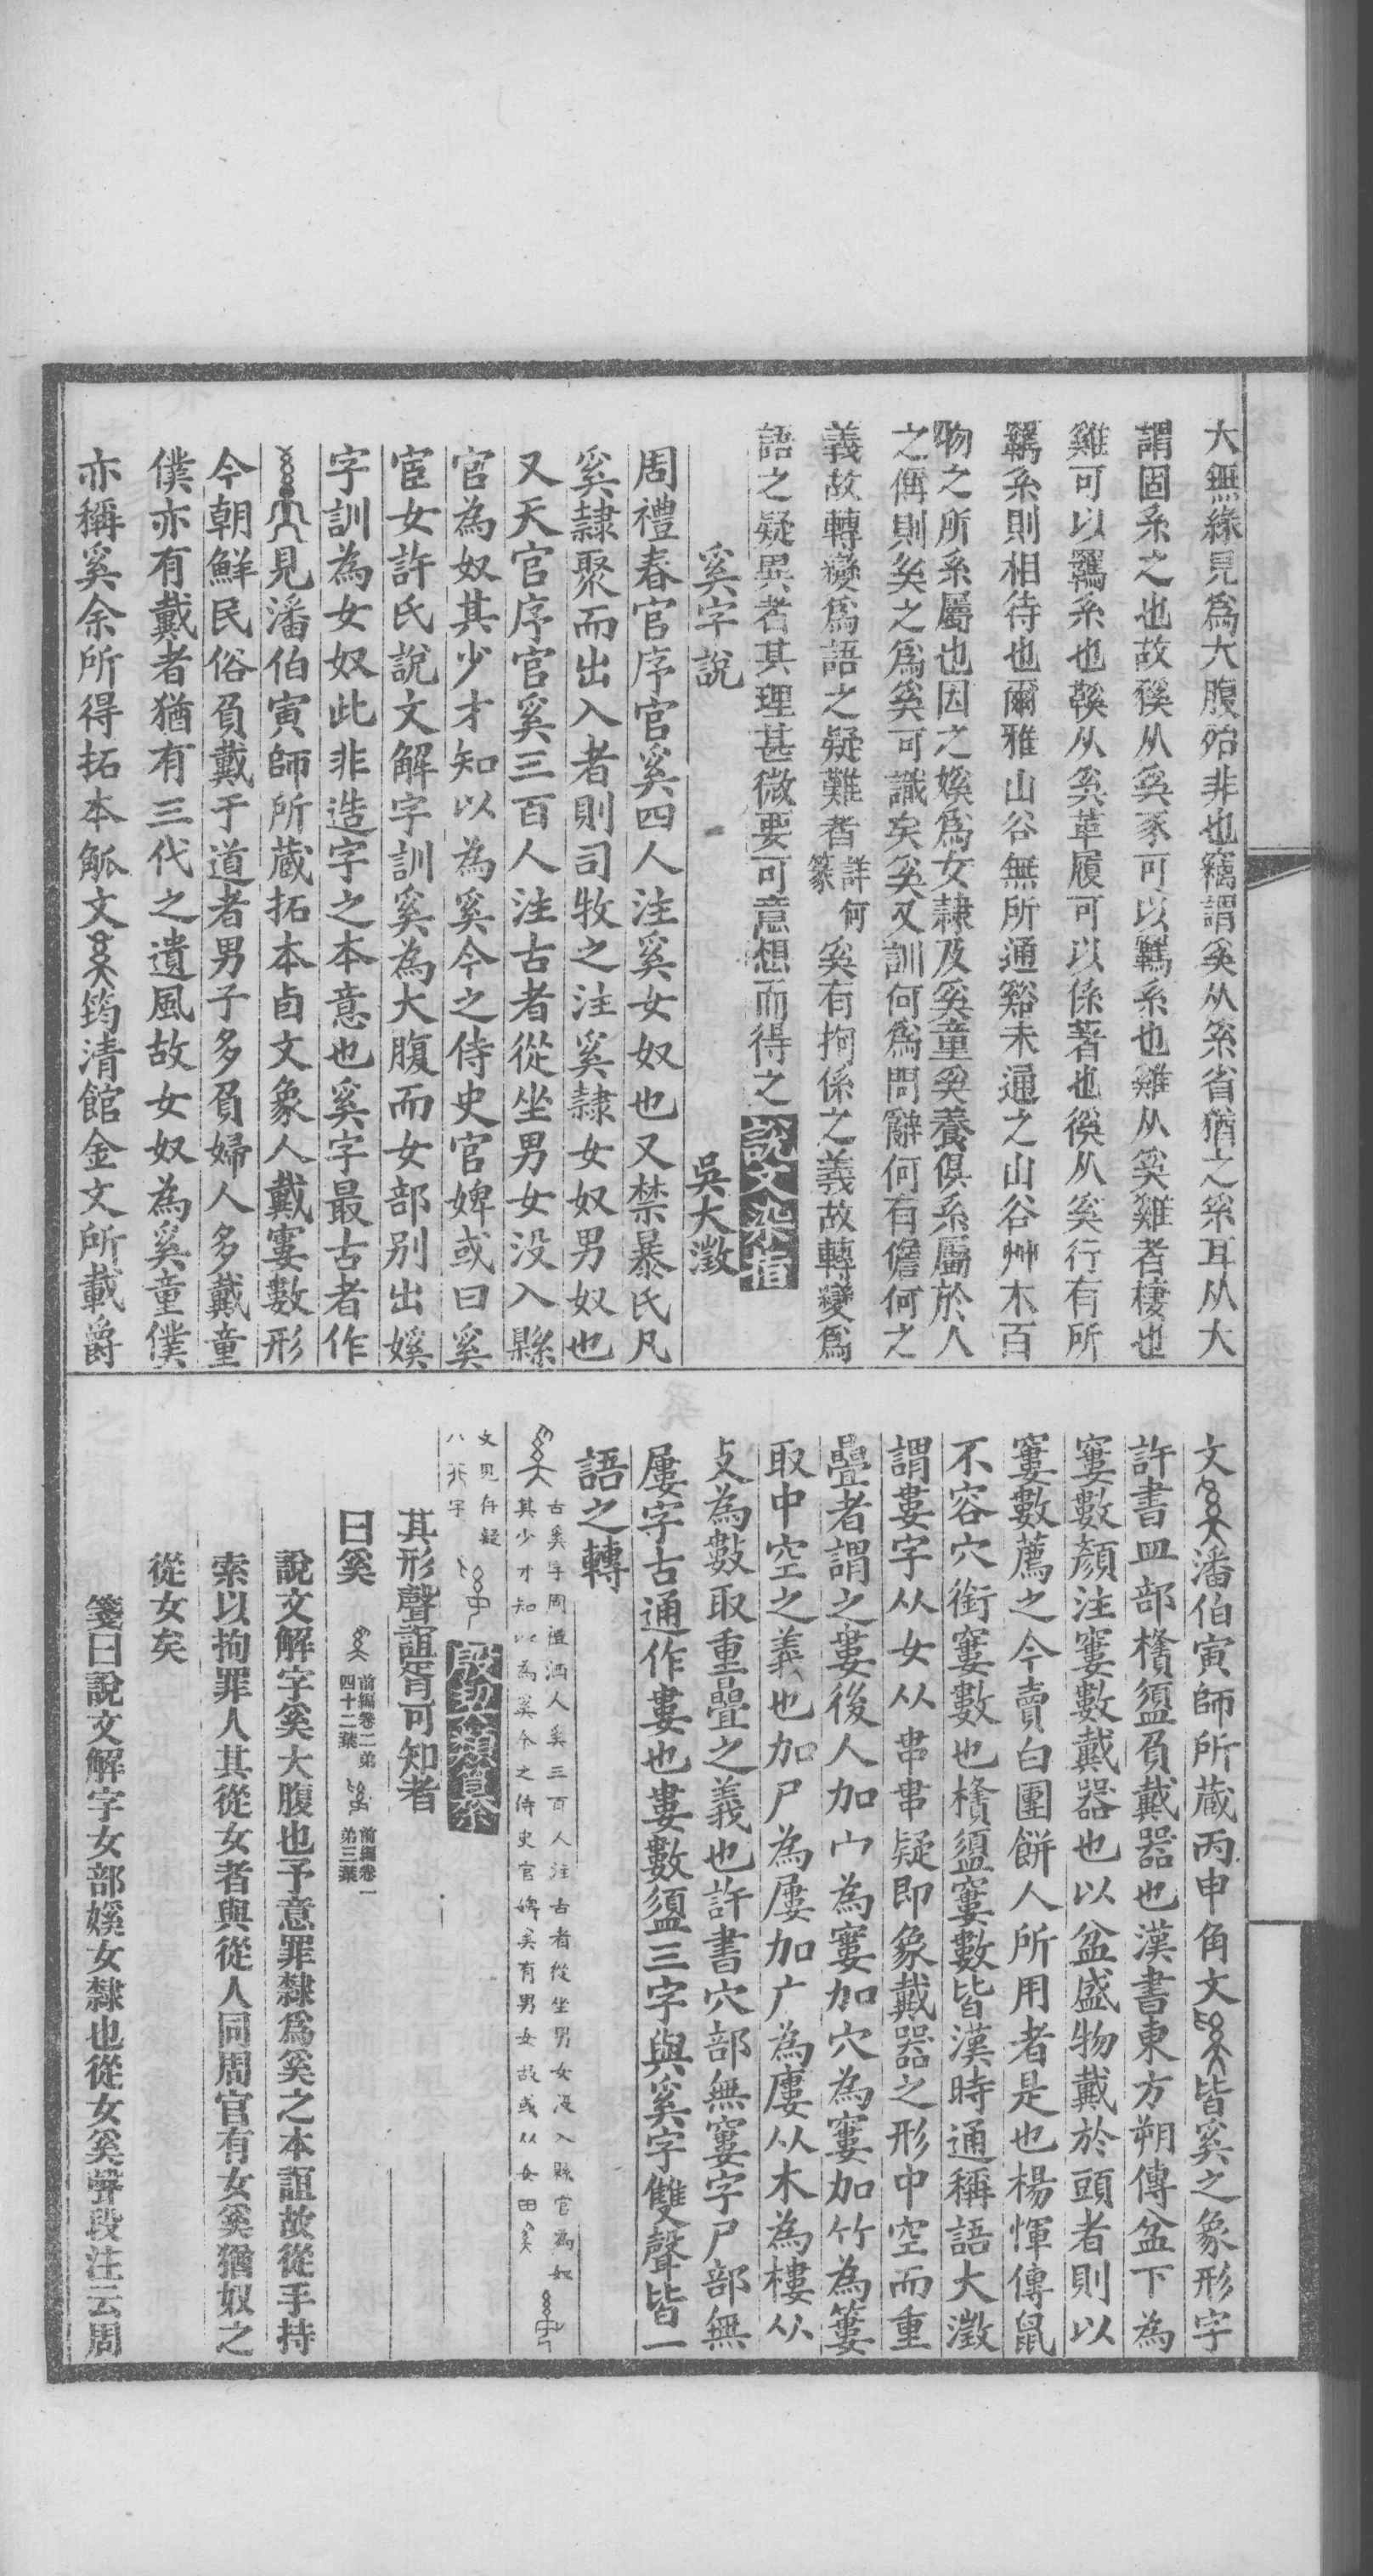 大無緣見爲大腹殆非也竊謂奚从系省猶之系耳从大
謂固系之也故豯从奚豕可以羈系也雞从奚雞者棲也
雞可以羈系也鞵从奚革履可以係著也徯从奚行有所
羈系則相待也爾雅山谷無所通谿未通之山谷艸木百
物之所系屬也因之娭爲女隸及奚童奚養俱系屬於人
之偁則奚之爲奚可識矣奚又訓何爲問辭何有儋何之
義故轉變爲語之疑難者詳何篆奚有拘係之義故轉變爲
語之疑異者其理甚微要可意想而得之說文染指
奚字說 吳大澂
周禮春官序官奚四人注奚女奴也又禁暴氏凡
奚隸聚而出入者則司牧之注奚隸女奴男奴也
又天官序官奚三百人注古者從坐男女没入縣
官為奴其少才知以為奚今之侍史官婢或曰奚
宦女許氏說文解字訓奚為大腹而女部别出娭
字訓為女奴此非造字之本意也奚字最古者作
見潘伯寅師所蔵拓本卣文象人戴寠數形
今朝鮮民俗負戴于道者男子多負婦人多戴童
僕亦有戴者猶有三代之遺風故女奴為奚童僕
亦稱奚余所得拓本觚文筠清館金文所載爵
文潘伯寅師所蔵丙申角文皆奚之象形字
許書皿部㯼盨負戴器也漢書東方朔傳盆下為
寠數顏注寠數戴器也以盆盛物戴於頭者則以
寠數薦之今賣白團餅人所用者是也楊惲傳鼠
不容穴銜寠數也㯼盨寠數皆漢時通稱語大澂
謂婁字从女从串串疑即象戴器之形中空而重
疊者謂之婁後人加宀為寠加穴為窶加竹為簍
取中空之義也加尸為屢加广為廔从木為樓从
攴為數取重疊之義也許書穴部無窶字尸部無
屢字古通作婁也婁數盨三字與奚字雙聲皆一
語之轉
古奚字周禮酒人奚三百人注古者從坐男女没入縣官為奴
其少才知以為奚今之侍史官婢奚有男女故或从女田奚
文見舟疑
八 字
殷契類纂
其形聲誼胥可知者
曰奚 前編卷二弟四十二葉 前編卷一弟三葉
說文解字奚大腹也予意罪隸爲奚之本誼故從手持
索以拘罪人其從女者與從人同周官有女奚猶奴之
從女矣
箋曰說文解字女部娭女隸也從女奚聲段注云周